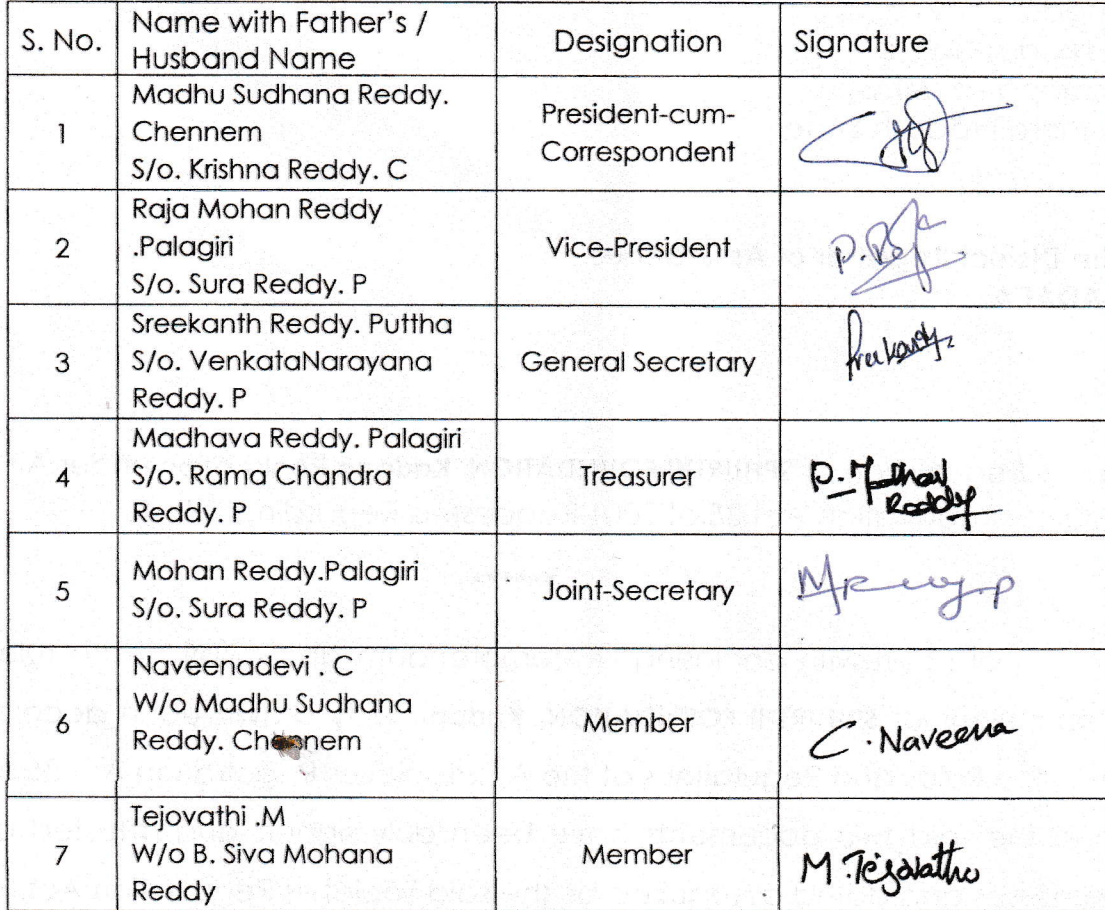 S. No.
Name with Father's /
Husband Name
Designation
Signature
1
Madhu Sudhana Reddy.
Chennem
S/o. Krishna Reddy. C
President-cum-
Correspondent
2
Raja Mohan Reddy
.Palagiri
S/o. Sura Reddy. P
Vice-President
3
Sreekanth Reddy. Puttha
S/o. VenkataNarayana
Reddy. P
General Secretary
4
Madhava Reddy. Palagiri
S/o. Rama Chandra
Reddy. P
Treasurer
P. Madhav
Reddy
5
Mohan Reddy.Palagiri
S/o. Sura Reddy. P
Joint-Secretary
6
Naveenadevi . C
W/o Madhu Sudhana
Reddy. Chennem
Member
C. Naveena
7
Tejovathi .M
W/o B. Siva Mohana
Reddy
Member